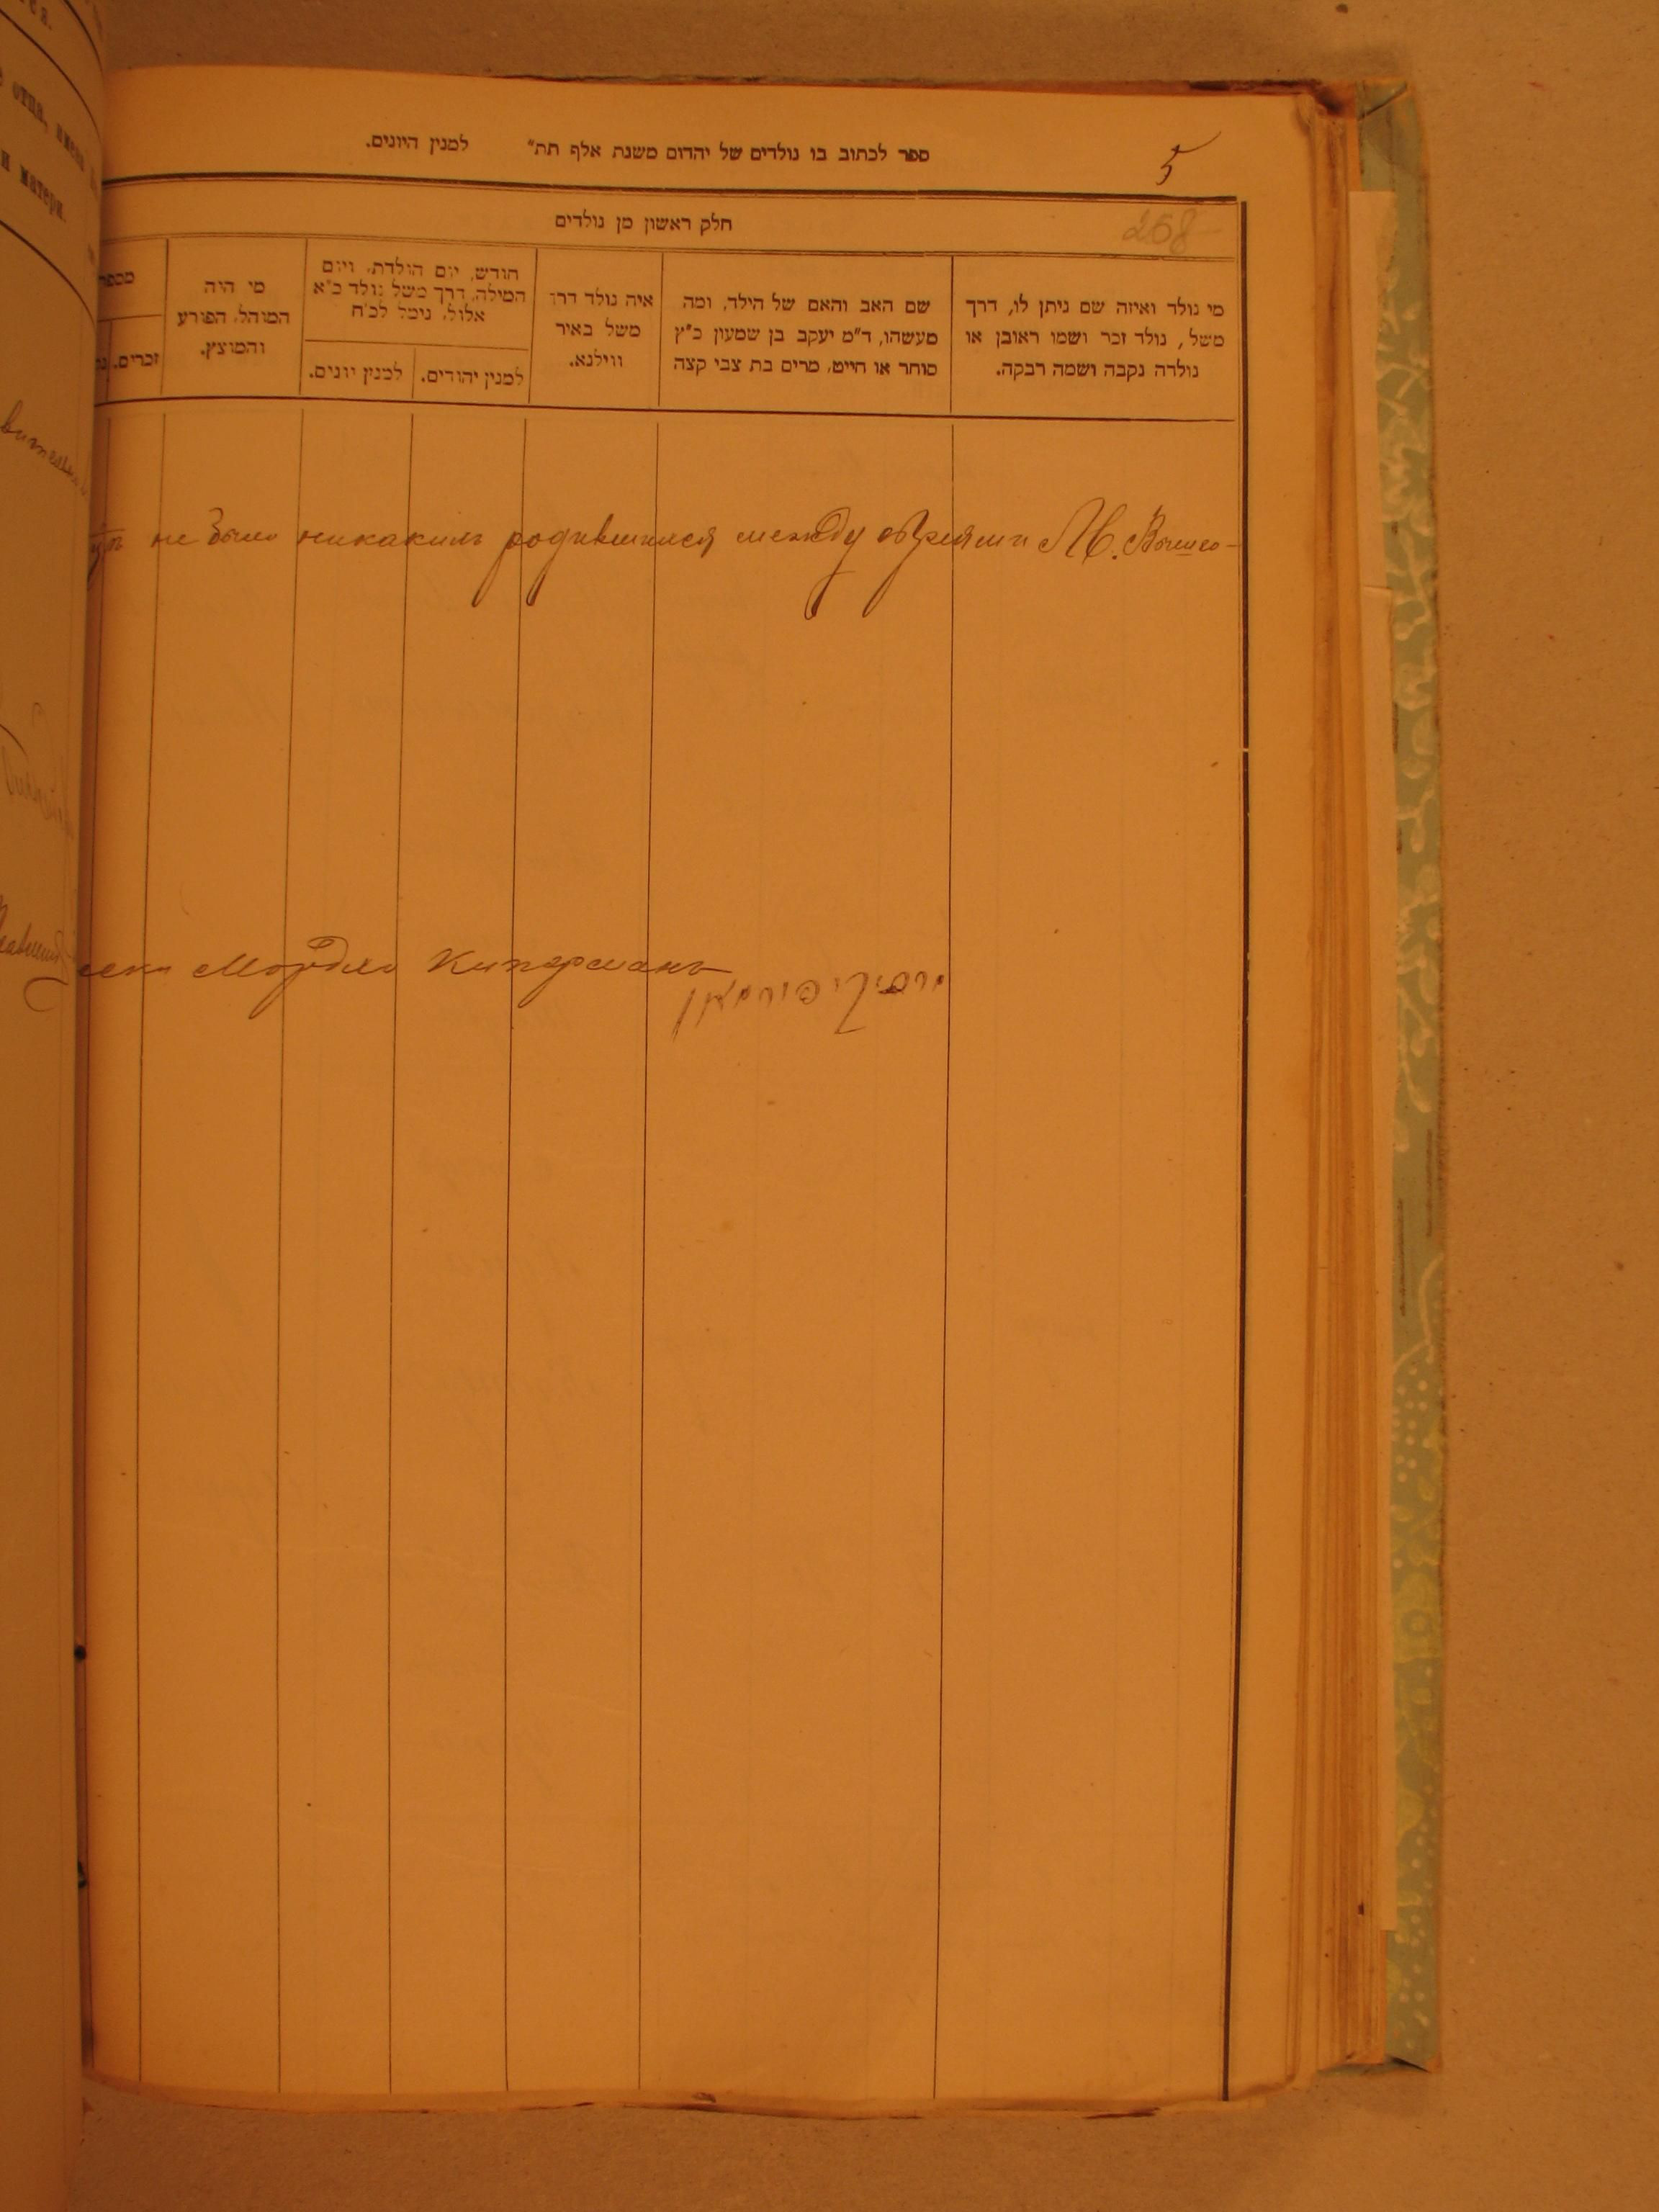 ספר לכתוב בו נולדים של יהדום משנת אלף תת״ למנין היונים.
5
חלק ראשון מן נולדים
268
מי נולד ואיזה שם ניתן לו, דרך
משל, נולד זכר ושמו ראובן או
נולדה נקבה ושמה רבקה.
שם האב והאם של הילד, ומה
מעשהו, ד״מ יעקב בן שמעון כ״ץ
סוחר או חייט, מרים בת צבי קצה
איה נולד דרך
משל באיר
ווילנא.
חודש, יום הולדת, ויום
המילה, דרך משל נולד כ״א
אלול, נימל לכ״ח
למנין יהודים.
למנין יונים.
מי היה
המוהל, הפורע
והמוצץ.
מספר
זכרים.
отца, имена
и матери.
не было никакихъ родившихся между евреями М. Вышго-
Мордко Киперманъ
קיפערמאן